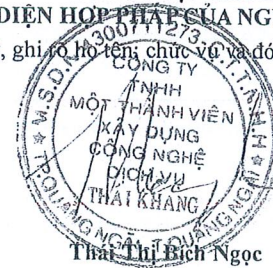 DIỆN HỢP PHÁP CỦA NG
, ghi rõ họ tên, chức vụ và đó
M.S.D.N: 4300711273 - C.T.T.N.H.H
CÔNG TY
TNHH
MỘT THÀNH VIÊN
XÂY DỰNG
CÔNG NGHỆ
DỊCH VỤ
THÁI KHANG
TP. QUẢNG NGÃI - T. QUẢNG NGÃI
Thái Thị Bích Ngọc